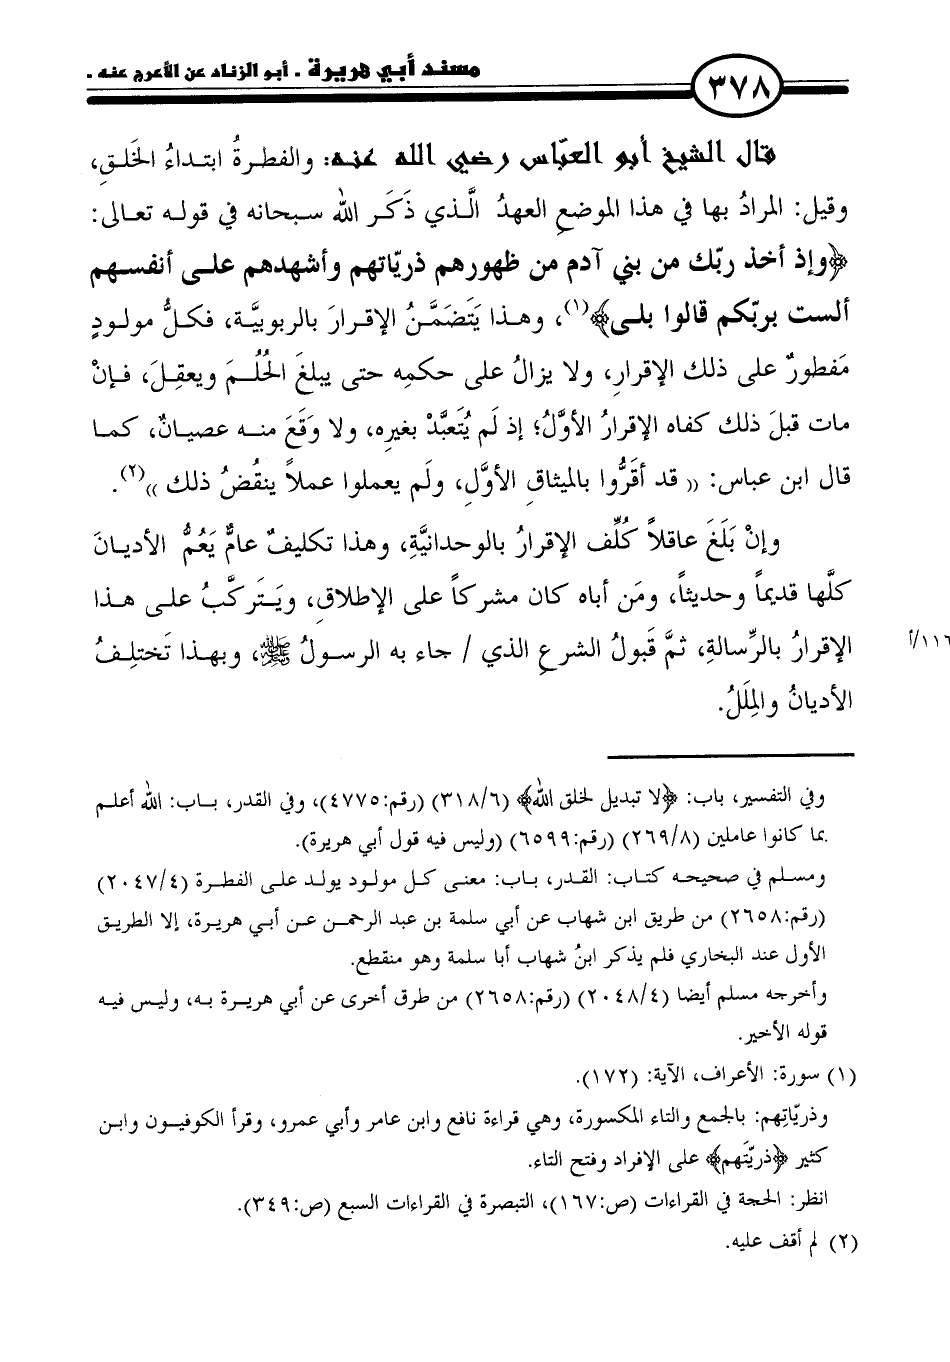 ٣٧٨
مسند أبي هريرة . أبو الزناد عن الأعرج عنه .
قال الشيخ أبو العبّاس رضي الله عنه: والفطرةُ ابتداءُ الخَلقِ،
وقيل: المرادُ بها في هذا الموضعِ العهدُ الَّذي ذَكَر اللهُ سبحانه في قوله تعالى:
﴿وإذ أخذ ربّك من بني آدم من ظهورهم ذريّاتهم وأشهدهم على أنفسهم
ألست بربّكم قالوا بلى﴾(١)، وهذا يَتَضَمَّنُ الإقرارَ بالربوبيَّة، فكلُّ مولودٍ
مَفطورٌ على ذلك الإقرارِ، ولا يزالُ على حكمِه حتى يبلغَ الحُلُمَ ويعقِلَ، فإنْ
مات قبلَ ذلك كفاه الإقرارُ الأوَّلُ؛ إذ لَم يُتَعبَّدْ بغيرِه، ولا وَقَعَ منه عصيانٌ، كما
قال ابن عباس: « قد أقَرُّوا بالميثاقِ الأوَّلِ، ولَم يعملوا عملاً ينقُضُ ذلك »(٢).
وإنْ بَلَغَ عاقلاً كُلِّف الإقرارُ بالوحدانيَّةِ، وهذا تكليفٌ عامٌّ يَعُمُّ الأديانَ
كلَّها قديماً وحديثاً، ومَن أباه كان مشركاً على الإطلاقِ، ويَتَركَّبُ على هذا
الإقرارُ بالرِّسالةِ، ثمَّ قَبولُ الشرعِ الذي / جاء به الرسولُ ﷺ، وبهذا تَختلِفُ
١١٦/أ
الأديانُ والمِلَلُ.
وفي التفسير، باب: ﴿لا تبديل لخلق الله﴾ (٣١٨/٦) (رقم:٤٧٧٥)، وفي القدر، باب: الله أعلم
بما كانوا عاملين (٢٦٩/٨) (رقم:٦٥٩٩) (وليس فيه قول أبي هريرة).
ومسلم في صحيحه كتاب: القدر، باب: معنى كل مولود يولد على الفطرة (٢٠٤٧/٤)
(رقم:٢٦٥٨) من طريق ابن شهاب عن أبي سلمة بن عبد الرحمن عن أبي هريرة، إلا الطريق
الأول عند البخاري فلم يذكر ابنُ شهاب أبا سلمة وهو منقطع.
وأخرجه مسلم أيضا (٢٠٤٨/٤) (رقم:٢٦٥٨) من طرق أخرى عن أبي هريرة به، وليس فيه
قوله الأخير.
(١) سورة: الأعراف، الآية: (١٧٢).
وذريّاتِهم: بالجمع والتاء المكسورة، وهي قراءة نافع وابن عامر وأبي عمرو، وقرأ الكوفيون وابن
كثير ﴿ذريّتَهم﴾ على الإفراد وفتح التاء.
انظر: الحجة في القراءات (ص:١٦٧)، التبصرة في القراءات السبع (ص:٣٤٩).
(٢) لم أقف عليه.